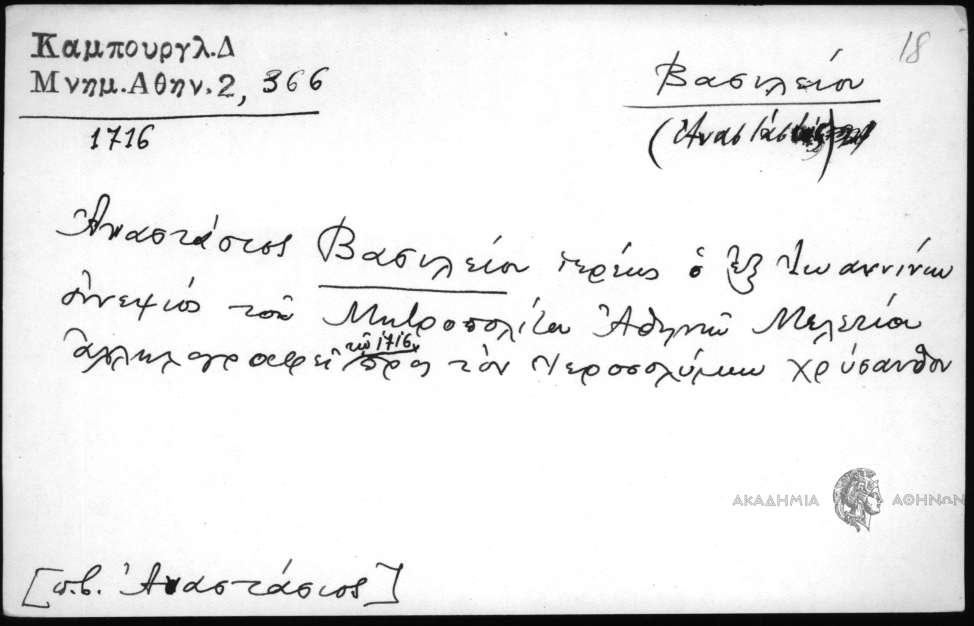 Καμπουργλ.Δ
Μνημ.Αθην.2, 366
1716
18
Βασιλείου
(Ἀναστάσιος)
Ἀναστάσιος Βασιλείου ἱερεὺς ὁ ἐξ Ἰωαννίνων
ἀνεψιός τοῦ Μητροπολίτου Ἀθηνῶν Μελετίου
ἀλληλογραφεῖ τῷ 1716 πρὸς τὸν Ἱεροσολύμων Χρύσανθον
ΑΚΑΔΗΜΙΑ ΑΘΗΝΩΝ
[π.β. Ἀναστάσιος]